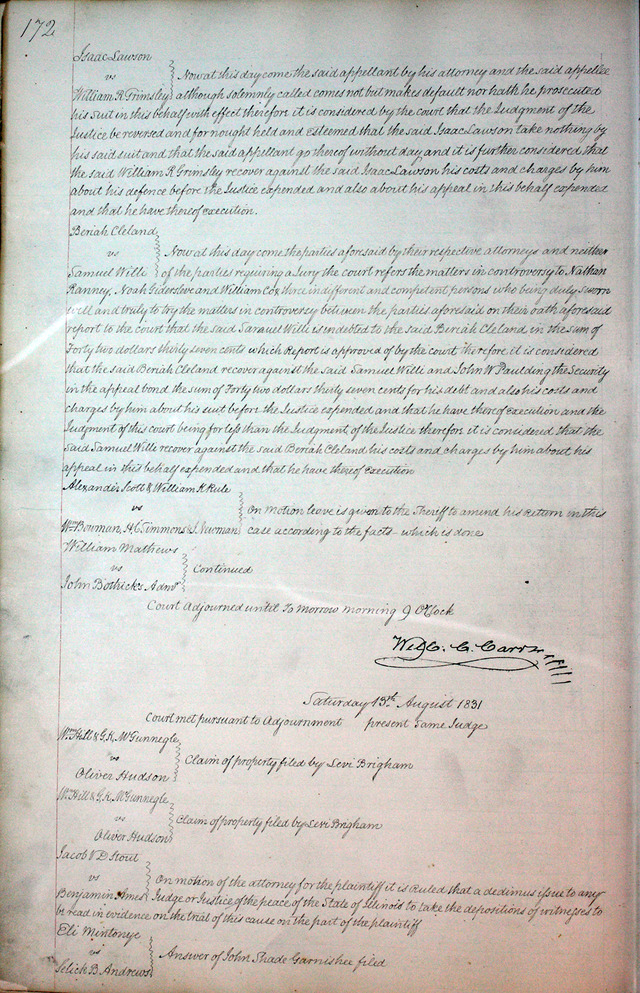 172
Isaac Lawson
vs Now at this day come the said appellant by his attorney and the said appellee
William R Grimsley although solemnly called comes not but makes default nor hath he prosecuted
his suit in this behalf with effect therefore it is considered by the court that the Judgment of the
Justice be reversed and for nought held and esteemed that the said Isaac Lawson take nothing by
his said suit and that the said appellant go thereof without day and it is further considered that
the said William R Grimsley recover against the said Isaac Lawson his costs and charges by him
about his defence before the Justice expended and also about his appeal in this behalf expended
and that he have thereof execution.
Beriah Cleland
vs Now at this day come the parties aforesaid by their respective attorneys and neither
Samuel Wille of the parties requiring a Jury the court refers the matters in controversy to Nathan
Ranney, Noah Giderslive and William Cox three indifferent and competent persons who being duly sworn
well and truly to try the matters in controversy between the parties aforesaid on their oath aforesaid
report to the court that the said Samuel Wille is indebted to the said Beriah Cleland in the sum of
Forty two dollars thirty seven cents which Report is approved of by the court Therefore it is considered
that the said Beriah Cleland recover against the said Samuel Wille and John W Paulding the Security
in the appeal bond the sum of Forty two dollars thirty seven cents for his debt and also his costs and
charges by him about his suit before the Justice expended and that he have thereof execution and the
Judgment of this court being for less than the Judgment of the Justice therefore it is considered that the
said Samuel Wille recover against the said Beriah Cleland his costs and charges by him about his
appeal in this behalf expended and that he have thereof execution
Alexander Scott & William K Rule
vs On motion leave is given to the Sheriff to amend his Return in this
Wm Bowman, H. C. Simmons & J. case according to the facts - which is done
William Mathews
vs Continued
John Bothick's Admr
Court Adjourned until To morrow morning 9 O'Clock
Wm C. Carr
Saturday 13th August 1831
Court met pursuant to Adjournment present Same Judge
Wm Hill & G. K. McGunnegle
vs Claim of property filed by Levi Brigham
Oliver Hudson
Wm Hill & G. K. McGunnegle
vs Claim of property filed by Levi Brigham
Oliver Hudson
Jacob V D Stout
vs On motion of the attorney for the plaintiff it is Ruled that a dedimus issue to any
Benjamin Ames Judge or Justice of the peace of the State of Illinois to take the depositions of witnesses to
be read in evidence on the trial of this cause on the part of the plaintiff
Eli Mintonye
vs Answer of John Shade Garnishee filed
Selick B Andrews